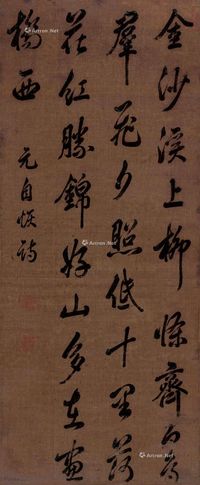 金沙溪上柳條齊白鳥
羣飛夕照低十里落
花紅勝錦好山多在畫
橋西
元自恢詩
Artron.Net